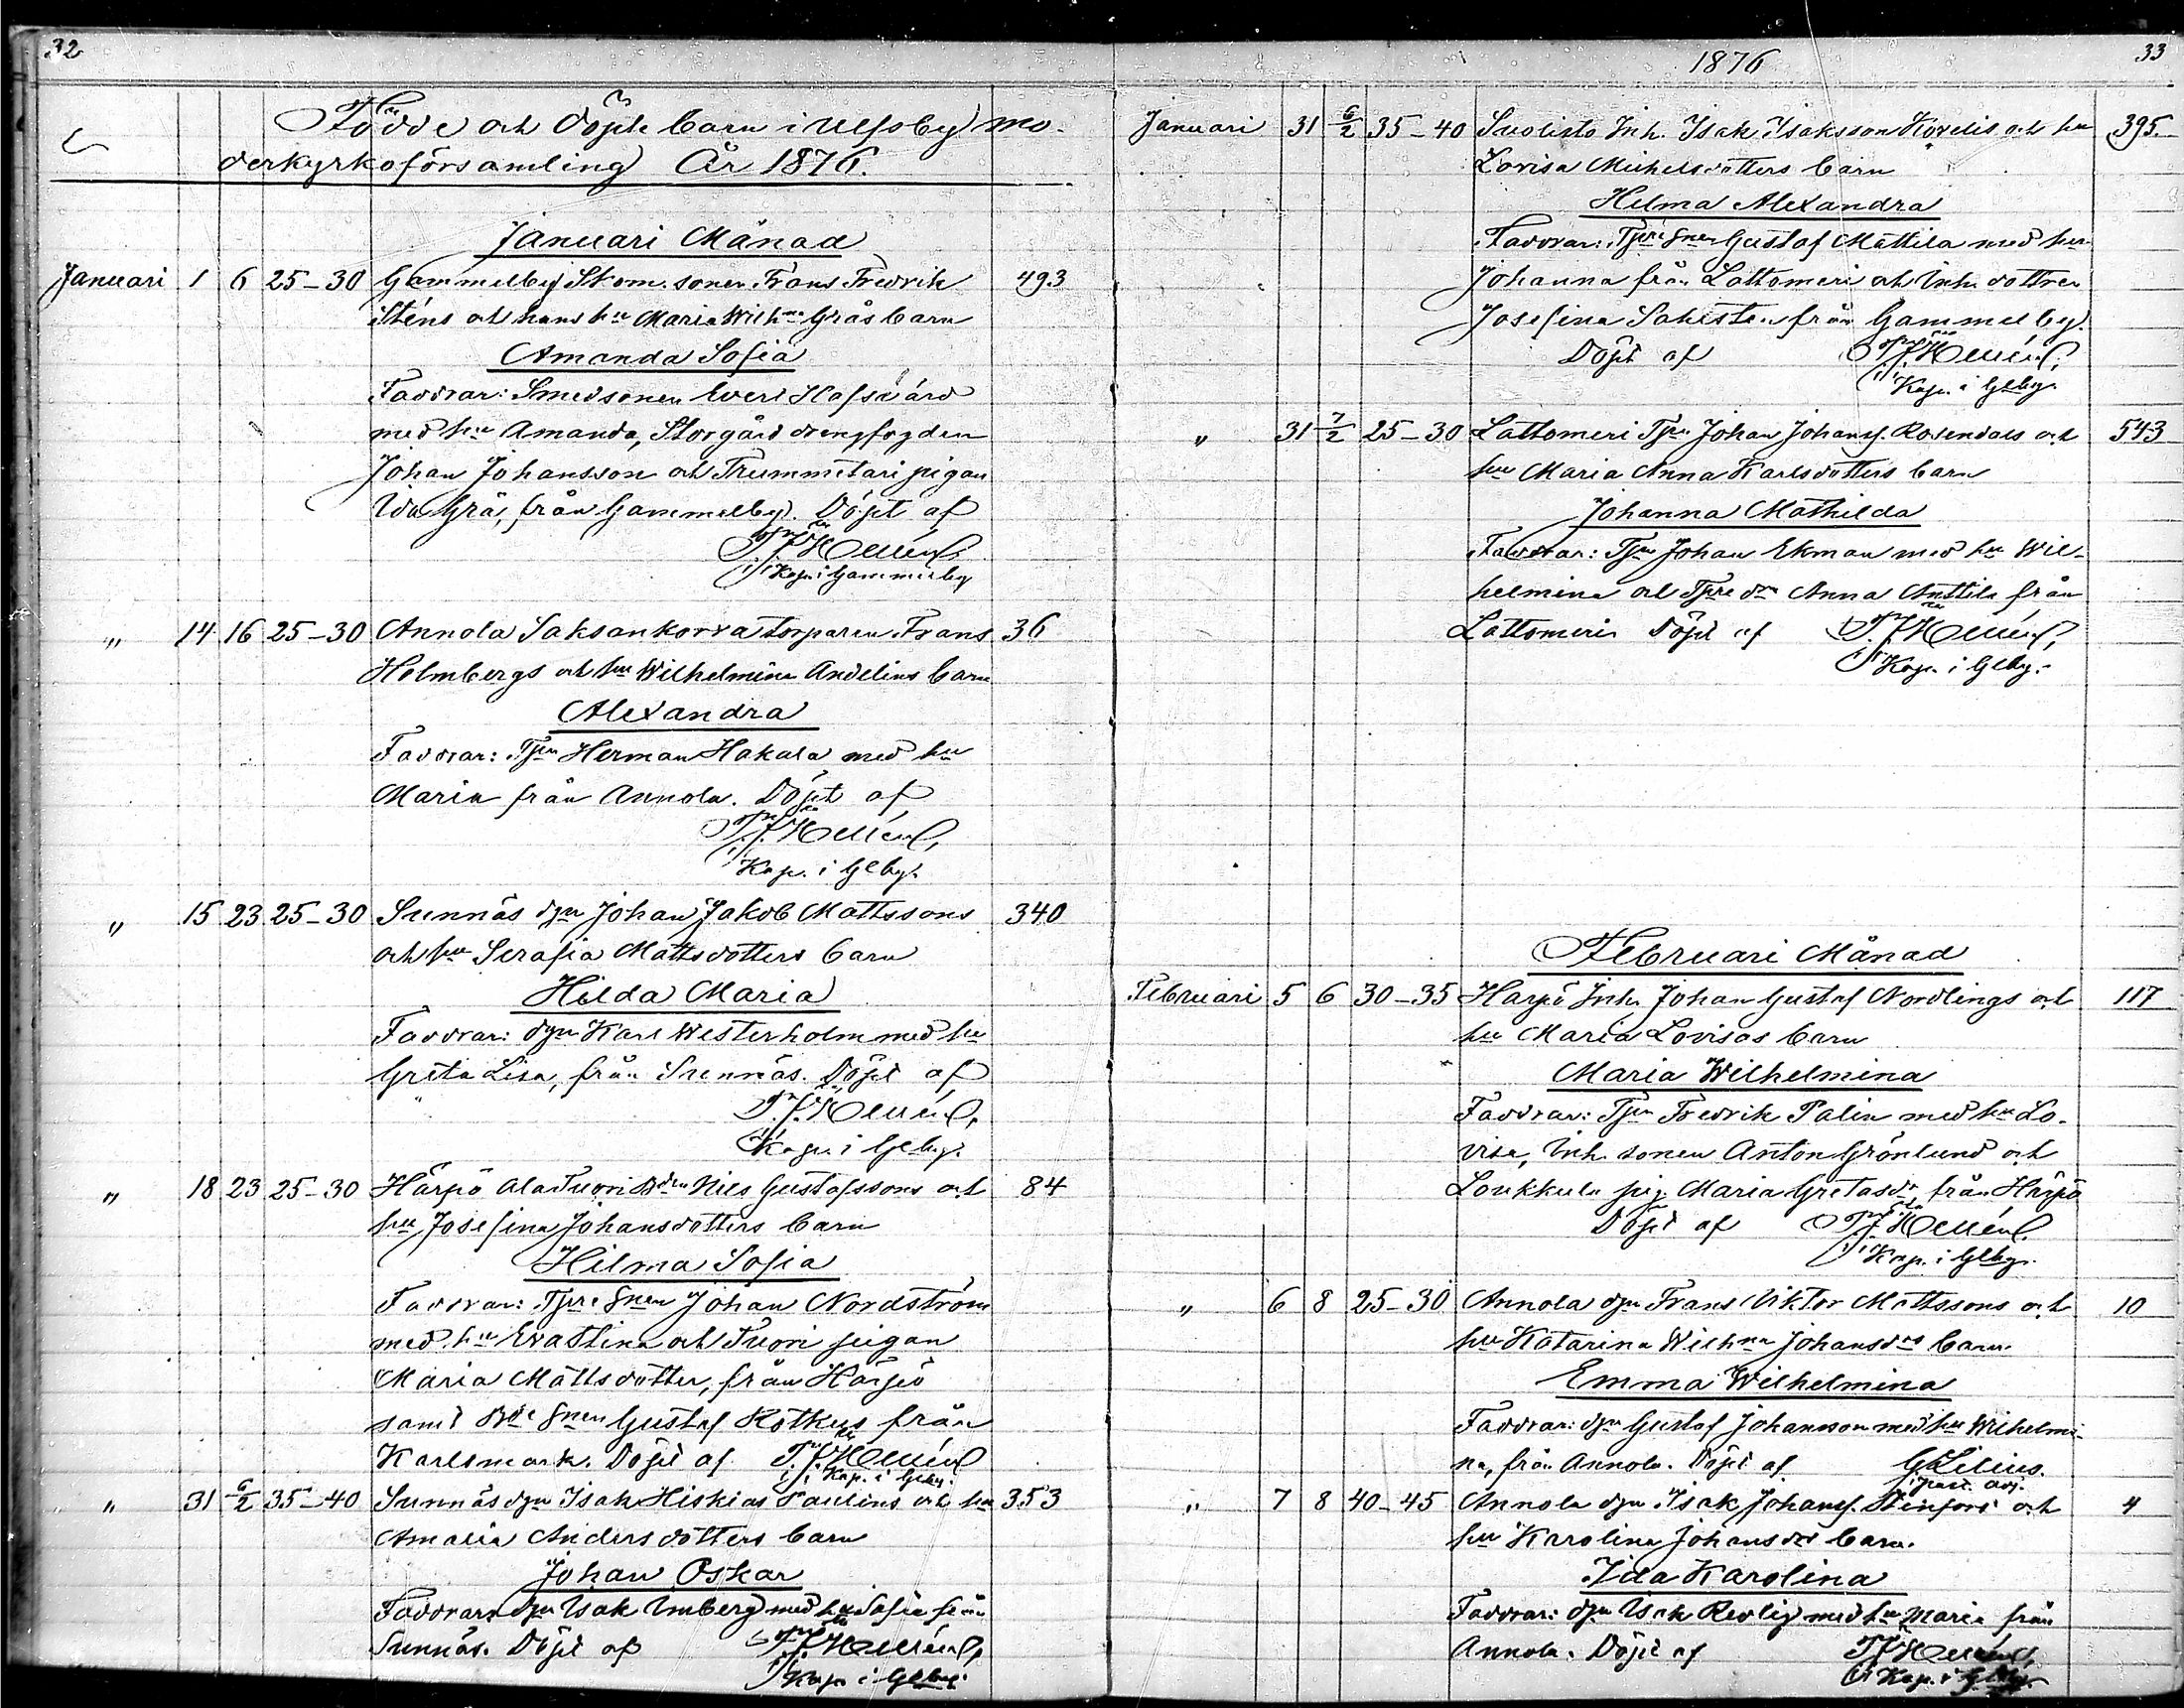 32
Födde och döpte barn i Ulfsby mo-
derkyrkoförsamling År 1876.
Januari Månad
Januari 1 6 25-30 Gammelby Skom. sonen Frans Fredrik 493
Sténs och hans hu Maria Wilhna Grås barn
Amanda Sofia
Faddrar: Smedsonen Evert Hafsvård
med hu Amanda, Storgård drengfogden
Johan Johansson och Trummetari pigan
Ida Grå, från Gammelby. Döpt af
Kap. i Gammelby
" 14 16 25-30 Annola Saksankorva torparen Frans 36
Holmbergs och hu Wilhelmina Andelins barn
Alexandra
Faddrar: Tprn Herman Hakala med hu
Maria från Annola. Döpt af
Kap. i Glby.
" 15 23 25-30 Sunnäs dgn Johan Jakob Mattssons 340
och hu Serafia Mattsdotters barn
Hilda Maria
Faddrar: dgn Karl Westerholm med hu
Greta Lisa, från Sunnäs. Döpt af
Kapn i Glby.
" 18 23 25-30 Härpö Ala Tuori Bdn Nils Gustafssons och 84
hu Josefina Johansdotters barn
Hilma Sofia
Faddrar: Tpre snen Johan Nordström
med hu Eva Stina och Tuori pigan
Maria Mattsdotter, från Härpö
samt Bde snen Gustaf Rotkus från
Karlsmark. Döpt af
Kap. i Glby.
" 31 6/2 35-40 Sunnäs dgn Isak Hiskias Paulins och hu 353
Amalia Andersdotters barn
Johan Oskar
Faddrar: dgn Isak Imberg med hu Sofia från
Sunnäs. Döpt af
Kapn i Glby.
1876 33
Januari 31 6/2 35-40 Suolisto Inh. Isak Isaksson Kordelis och hu 395
Lovisa Michelsdotters barn
Hilma Alexandra
Faddrar: Tpre snen Gustaf Mattila med hu
Johanna från Lattomeri och Inh. dottren
Josefina Sahlsten från Gammelby.
Döpt af
Kapn. i Glby.
" 31 7/2 25-30 Lattomeri Tprn Johan Johanss. Rosendals och 543
hu Maria Anna Karlsdotters barn
Johanna Mathilda
Faddrar: Tprn Johan Ekman med hu Wil-
helmina och Tpre drn Anna Anttila från
Lattomeri. Döpt af
Kapn i Glby.
Februari Månad
Februari 5 6 30-35 Harpö Inh. Johan Gustaf Nordlings och 117
hu Maria Lovisas barn
Maria Wilhelmina
Faddrar: Tprn Fredrik Palin med hu Lo-
visa, Inh. sonen Anton Grönlund och
Loukkula pig. Maria Gretasdr från Härpö
Döpt af
Kap. i Glby.
" 6 8 25-30 Annola dgn Frans Viktor Mattssons och 10
hu Katarina Wilhna Johansdrs barn.
Emma Wilhelmina
Faddrar: dgn Gustaf Johansson med hu Wilhelmi-
na, från Annola. Döpt af G Lilius.
past. adj.
" 7 8 40-45 Annola dgn Isak Johanss. Stenfors och 4
hu Karolina Johansdrs barn.
Ida Karolina
Faddrar: dgn Isak Rovlig med hu Maria från
Annola. Döpt af
Kap. i Glby.